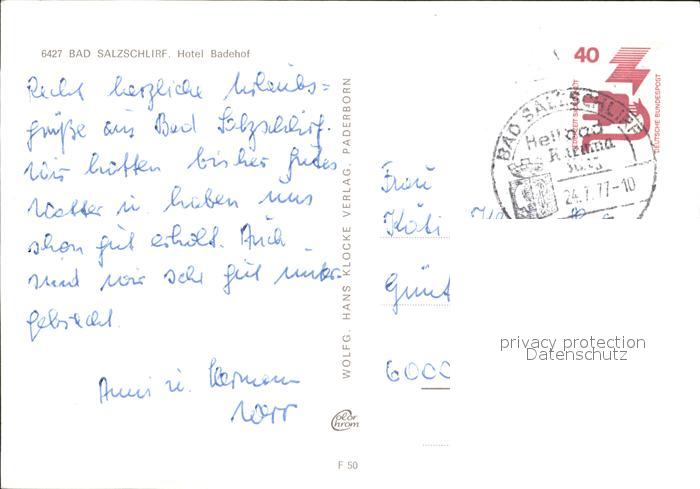 6427 BAD SALZSCHLIRF. Hotel Badehof
Recht herzliche Urlaubs=
grüße aus Bad Salzschlirf.
Wir hatten bisher gutes
Wetter u. haben uns
schon gut erholt. Auch
sind wir sehr gut unter-
gebracht.
Anni u. Hermann
WOLFG. HANS KLOCKE VERLAG, PADERBORN
Color
chrom
F 50
40
DEUTSCHE BUNDESPOST
BAD SALZSCHLIRF
Heilbad
24.7.77-10
Frau
Käti
Günt
6000
privacy protection
Datenschutz